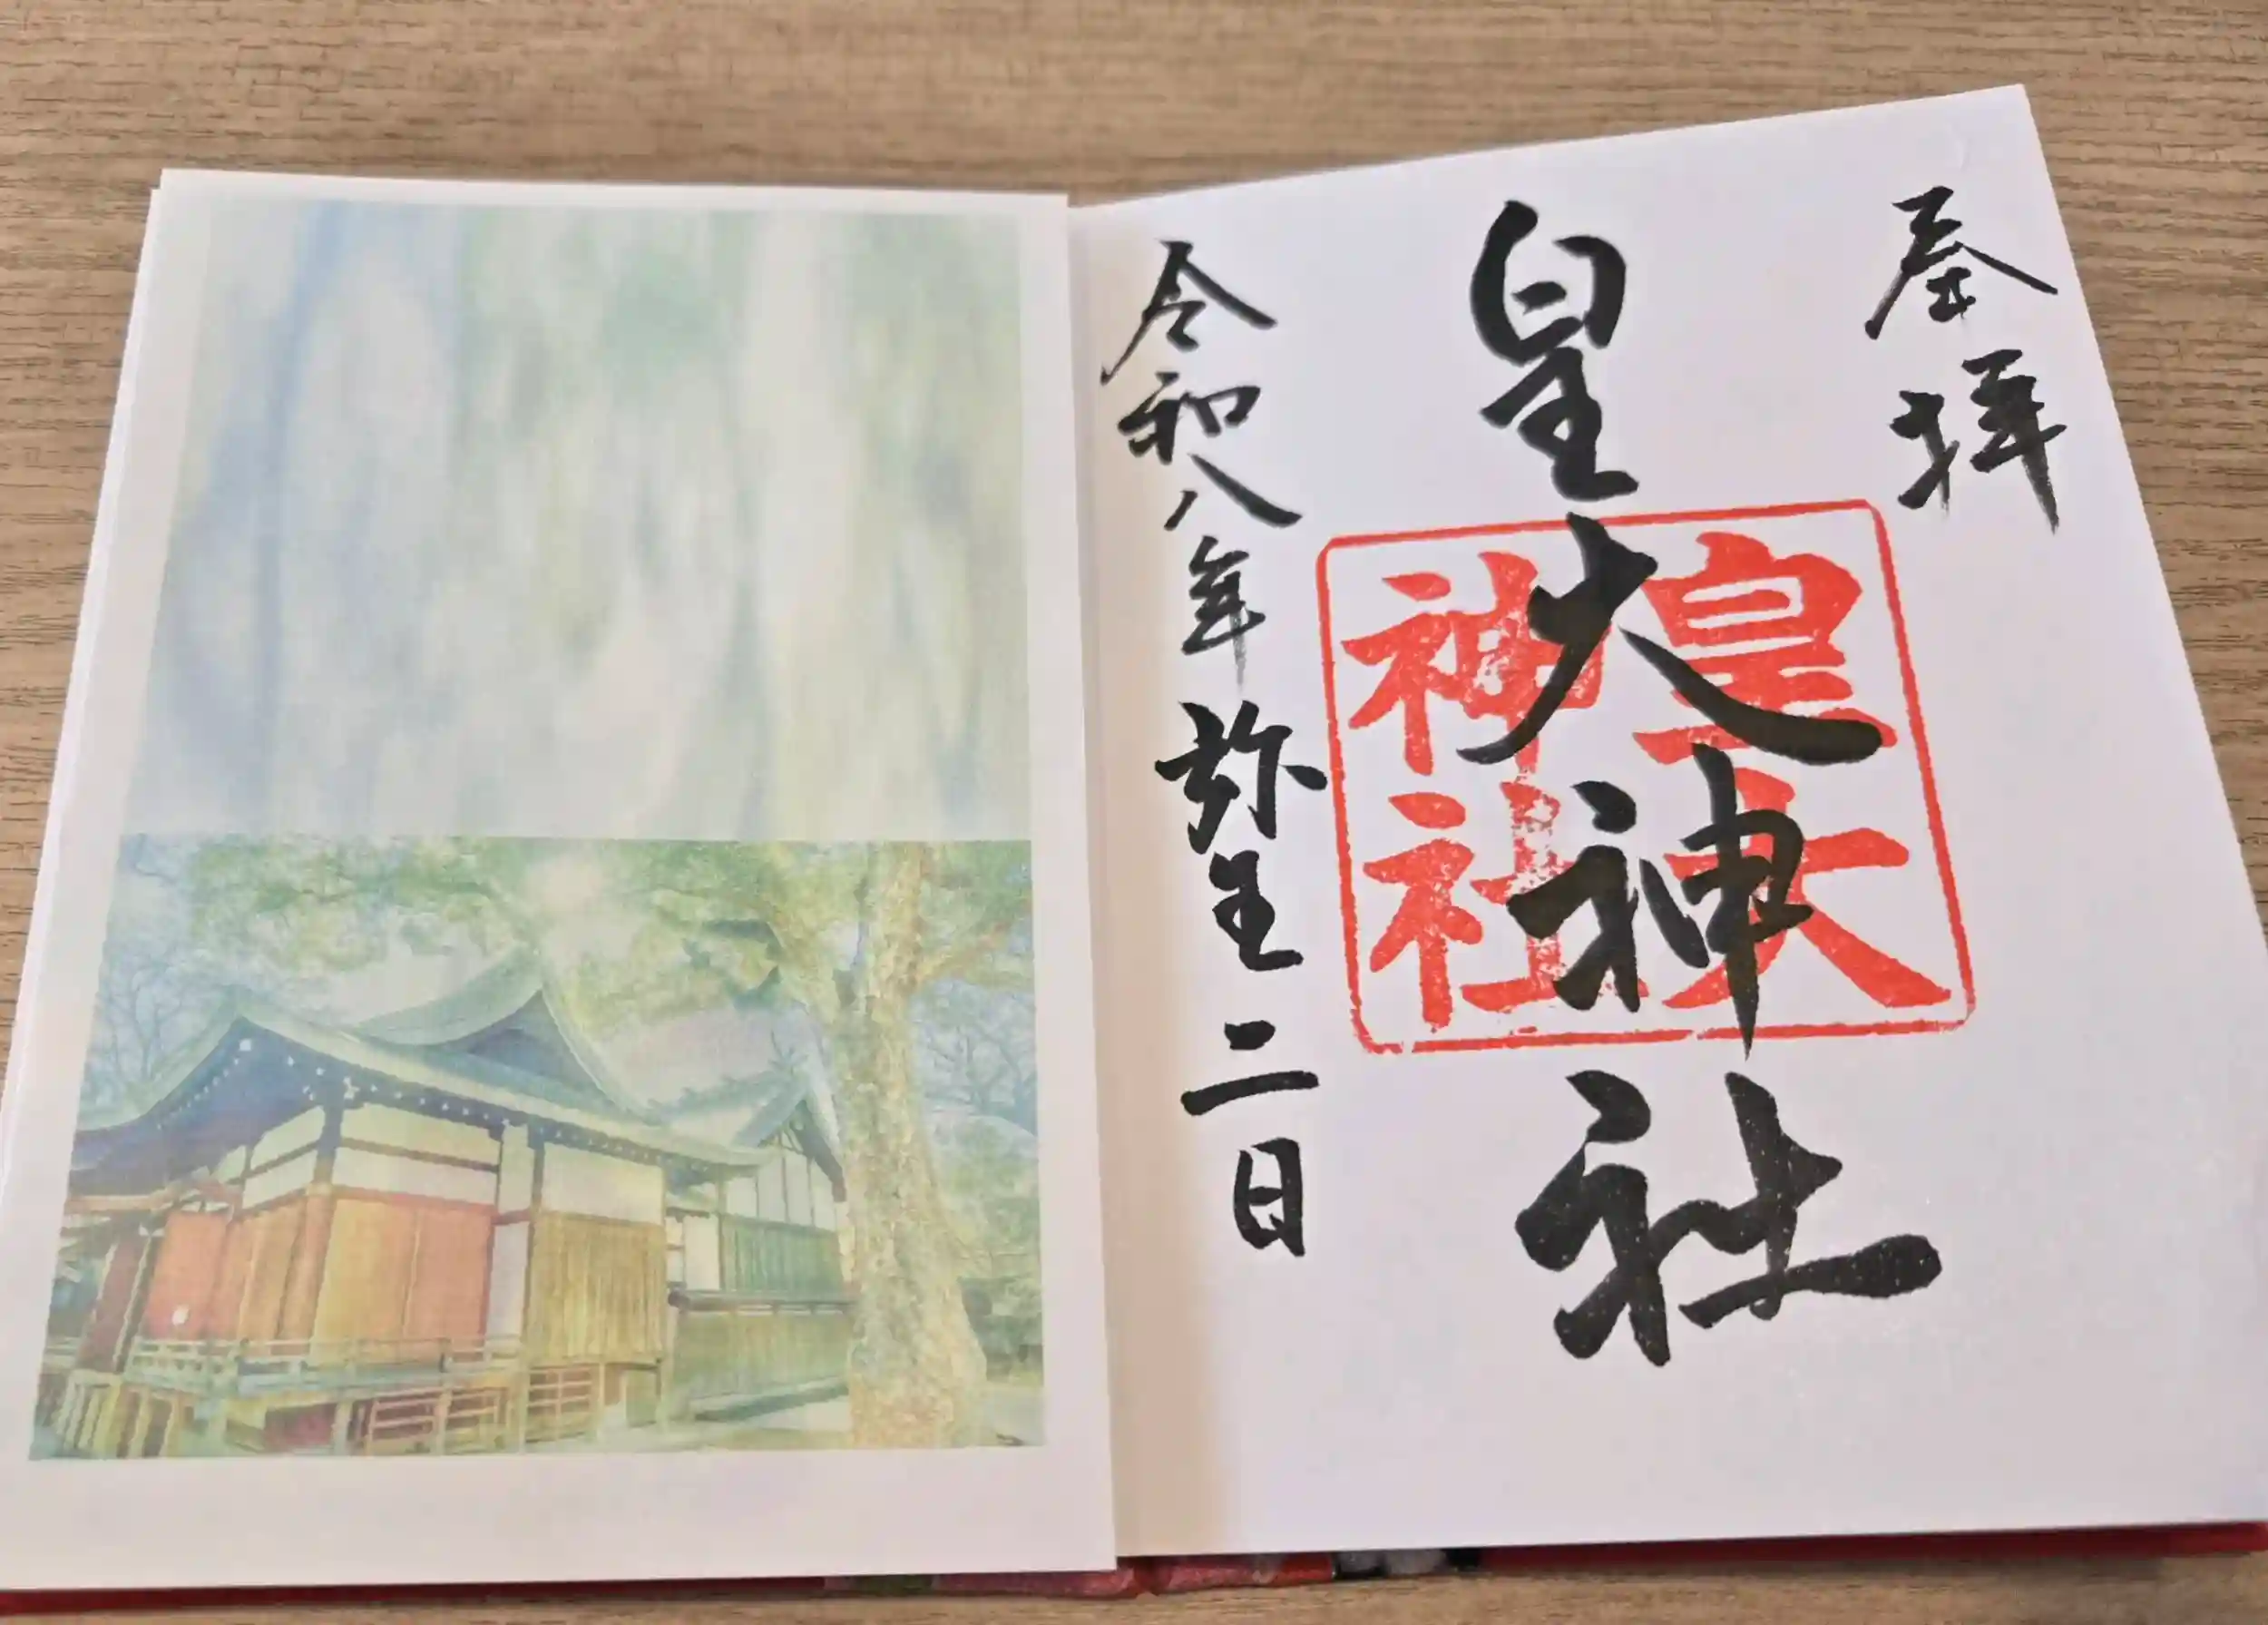 奉拝
皇大神社
皇大
神社
令和八年弥生二日